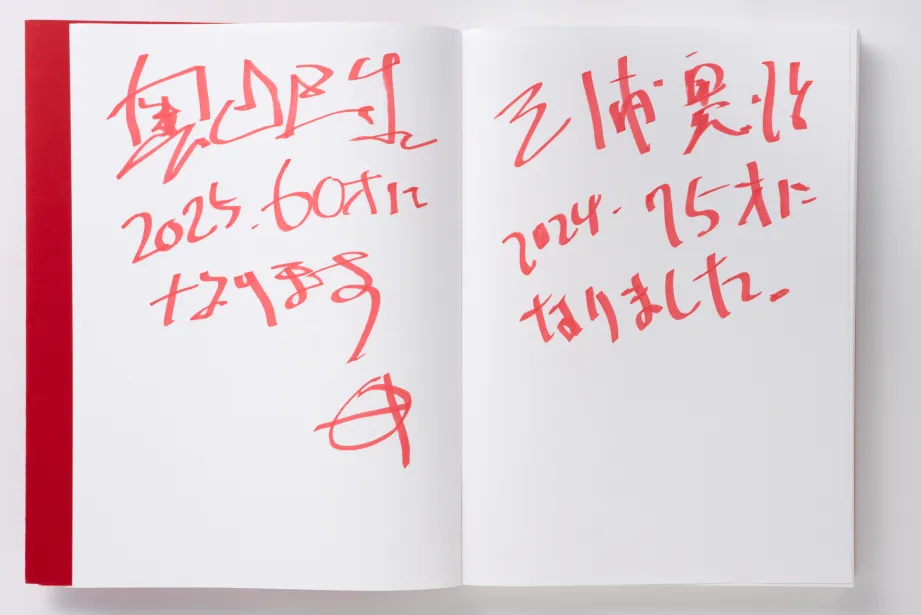 奥田民生
2025. 60才に
なります
三浦憲治
2024. 75才に
なりました。